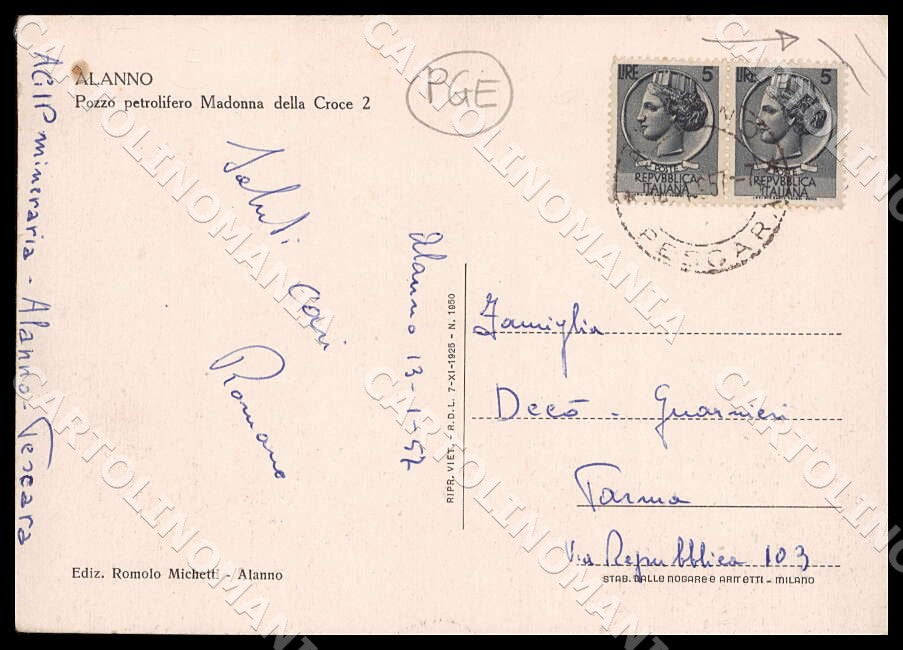 ALANNO
Pozzo petrolifero Madonna della Croce 2
PGE
LIRE 5
POSTE
REPVBBLICA
ITALIANA
LIRE 5
POSTE
REPVBBLICA
ITALIANA
PESCARA
AGIP mineraria - Alanno - Pescara
Saluti cari
Romano
Alanno 13-1-57
RIPR. VIET. - R.D.L. 7-XI-1925 - N. 1950
Famiglia
Decò - Guarnieri
Parma
Via Repubblica 103
Ediz. Romolo Michetti - Alanno
STAB. DALLE NOGARE E ARMETTI - MILANO
CARTOLINOMANIA